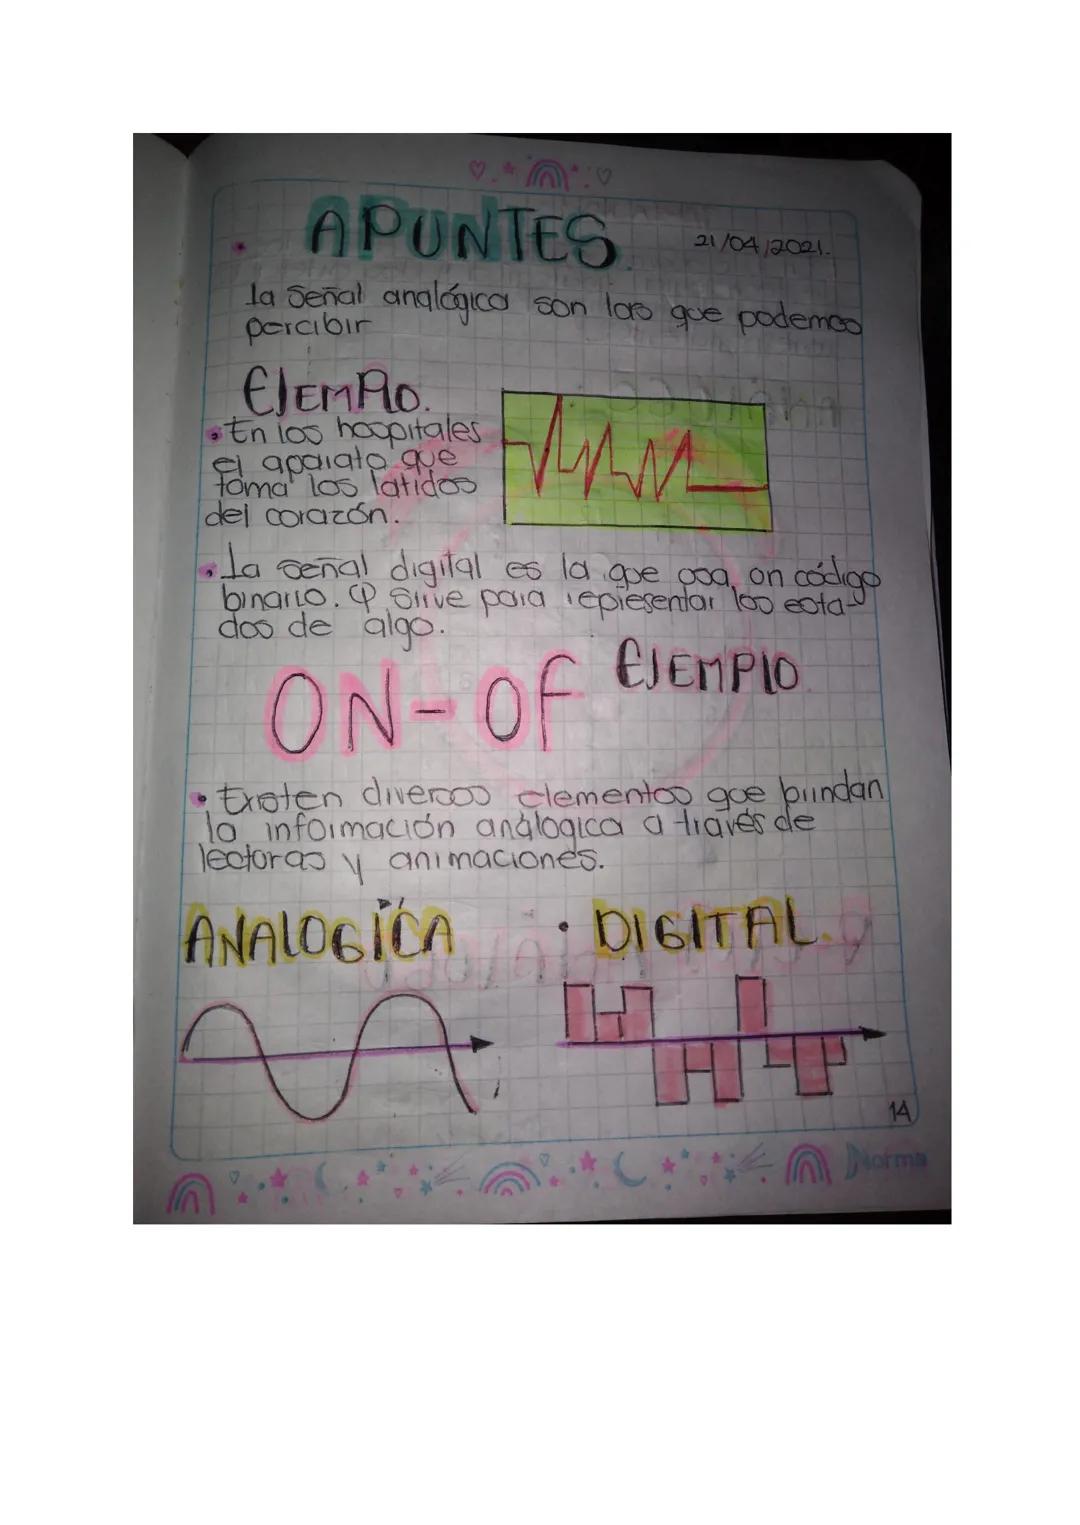 APUNTES.
21/04/2021.
la señal analógica son las que podemos
percibir
EJEMPlO.
En los hospitales
el aparato que
toma los latidos
del corazón.
La señal digital es la que usa un código
binario. φ sirve para representar los esta-
dos de algo.
ON-OF
EJEMPlO
Existen diversos elementos que brindan
la información análogica a través de
lectoras y animaciones.
ANALOGÍCA
DIGITAL.
14
Norma